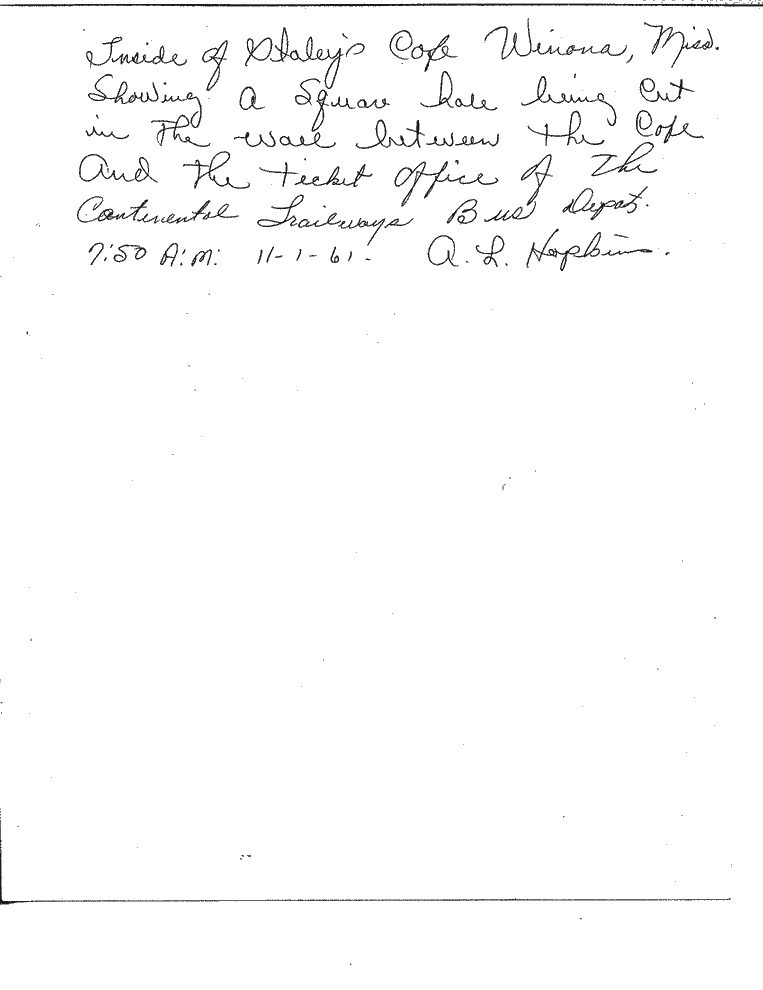 Inside of Staley's Cafe Winona, Miss.
Showing a Square hole being Cut
in The wall between the Cafe
And the ticket office of The
Continental Trailways Bus Depot.
7:50 A:M: 11-1-61- A. L. Hopkins.